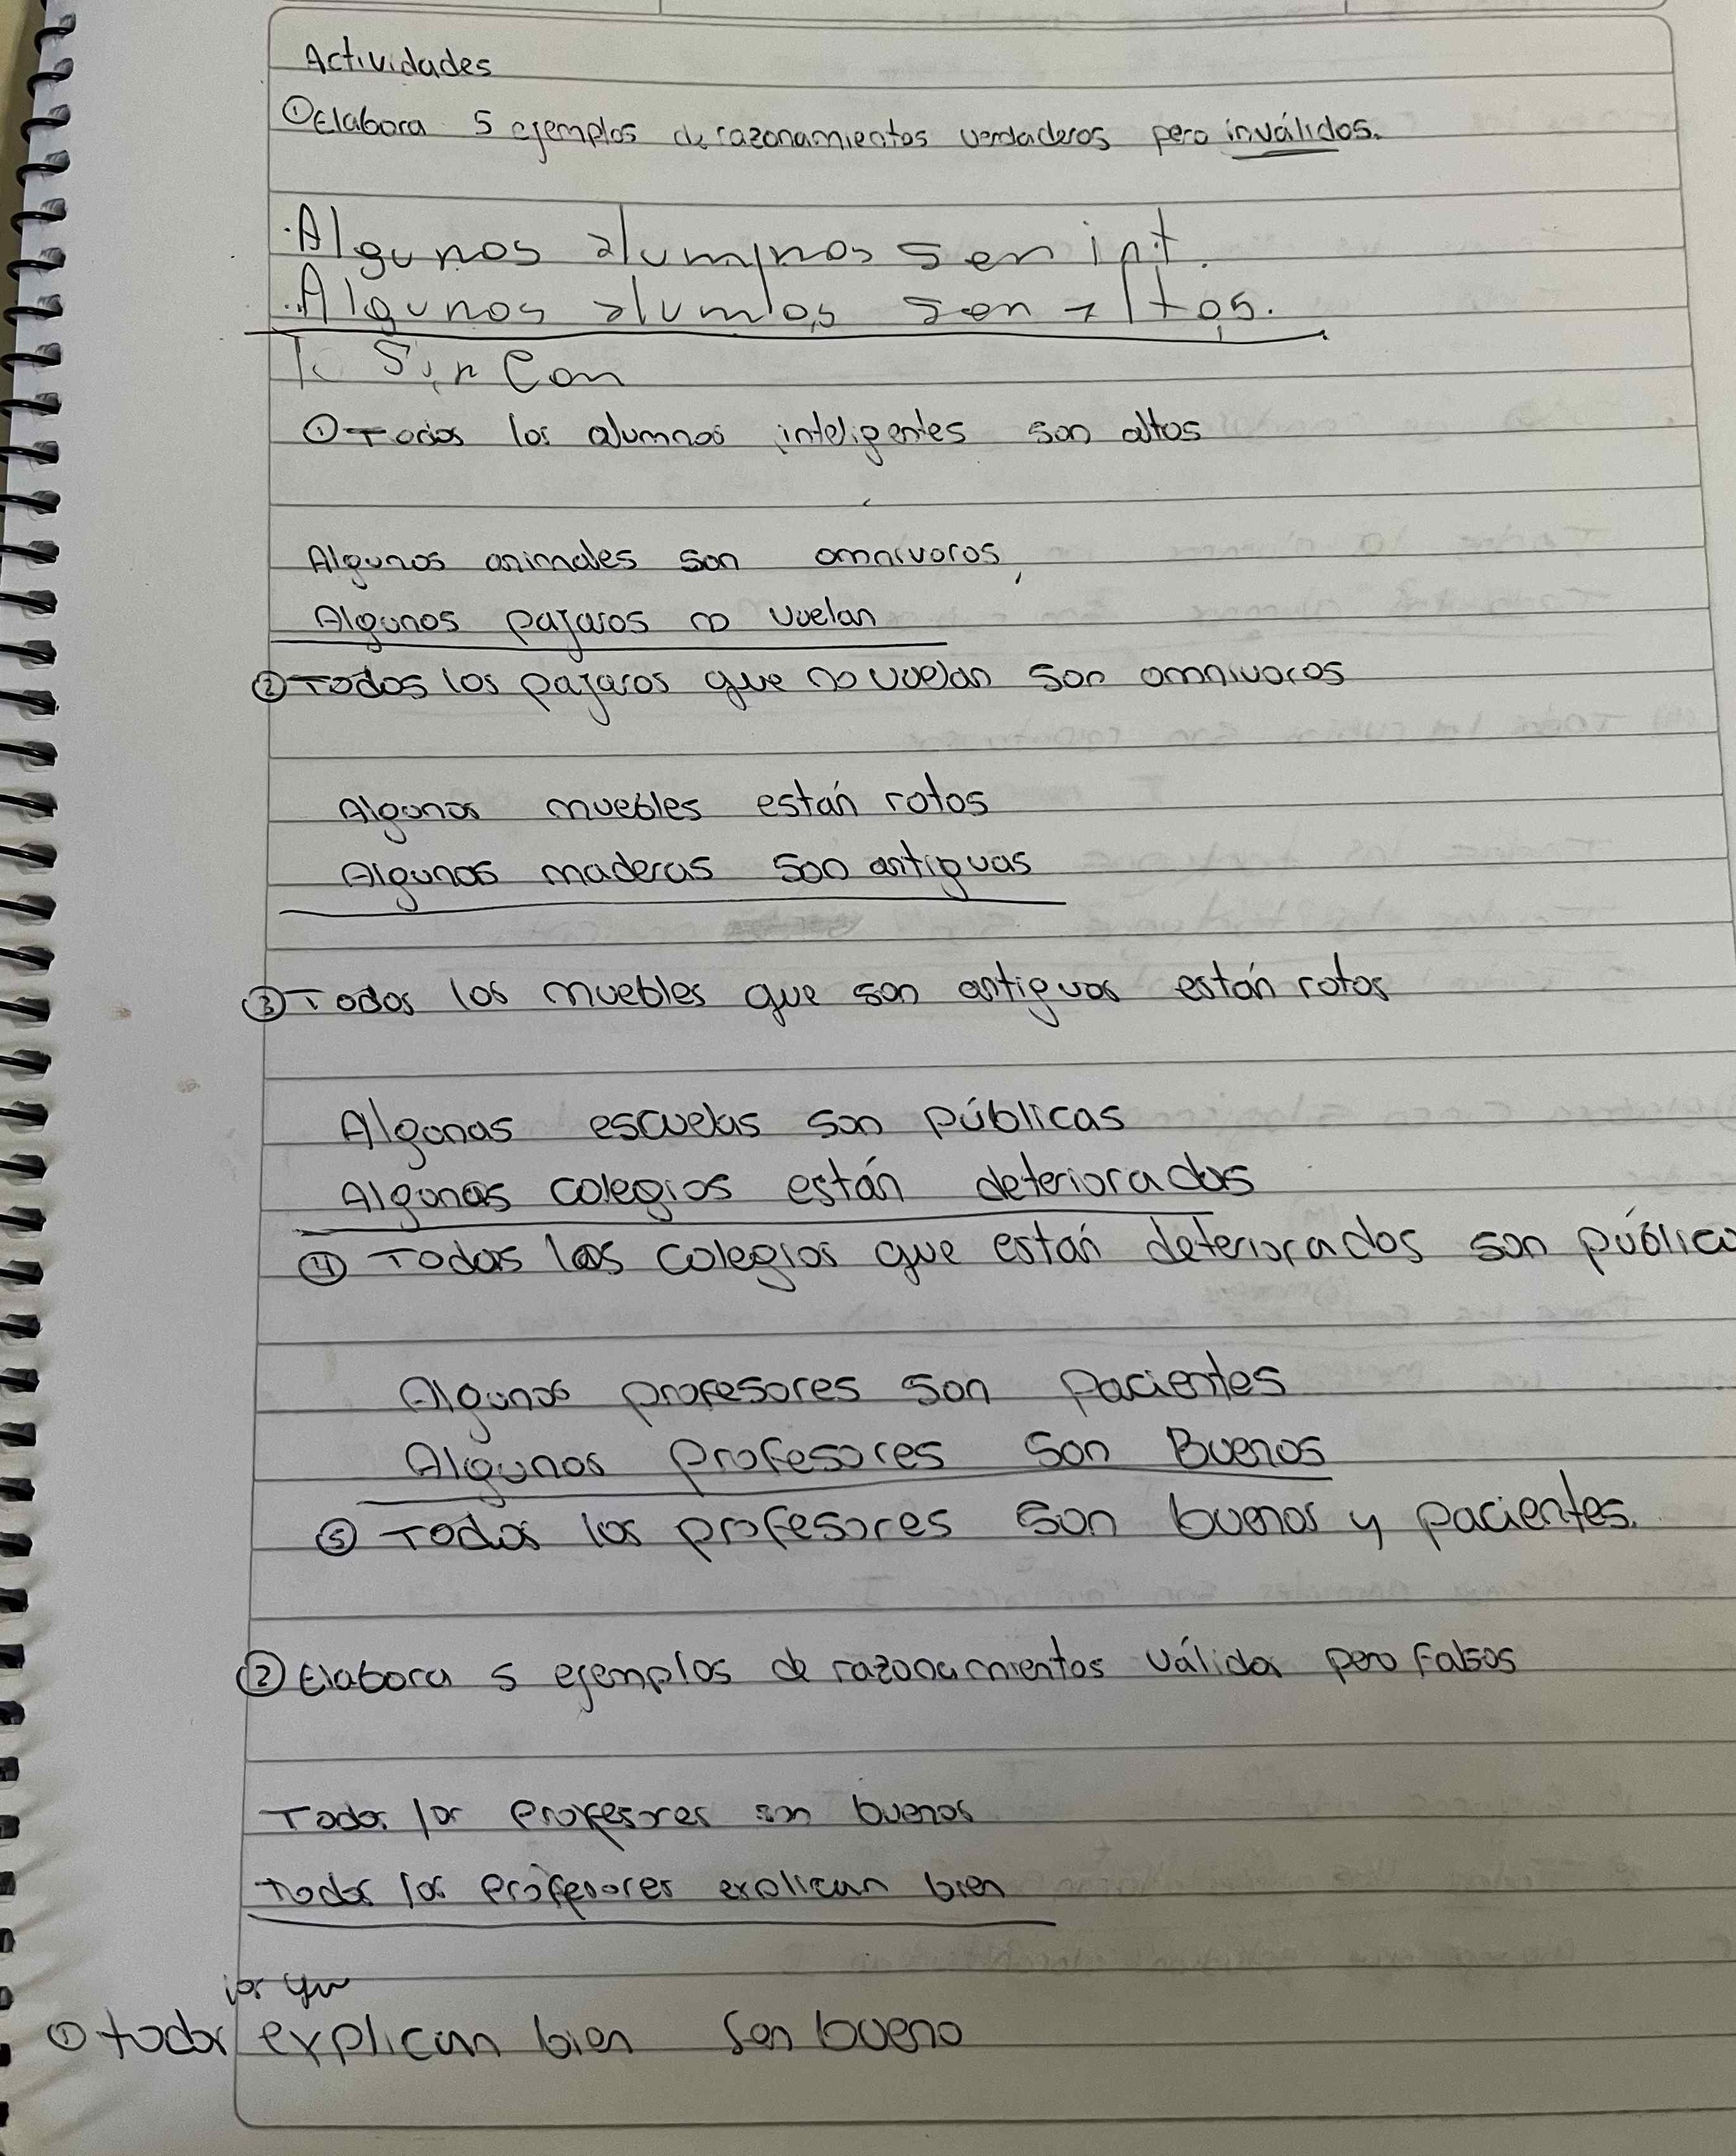 Actividades
①Elabora 5 ejemplos de razonamientos verdaderos pero inválidos.
·Algunos alumnos son int.
·Algunos alumos son altos.
Sin Con
①Todos los alumnos inteligentes son altos
Algunos animales son omnivoros,
Algunos pajaros no vuelan
②Todos los pajaros que no vuelan son omnivoros
Algunos muebles están rotos
Algunas maderas son antiguas
③Todos los muebles que son antiguos están rotos
Algunas escuelas son públicas
Algunos colegios están deteriorados
④ Todos los colegios que están deteriorados son público
Algunos profesores son pacientes
Algunos profesores son Buenos
⑤ Todos los profesores son buenos y pacientes.
② Elabora 5 ejemplos de razonamientos válidos pero falsos
Todos los profesores son buenos
Todos los profesores explican bien
los que
① todos explican bien son bueno